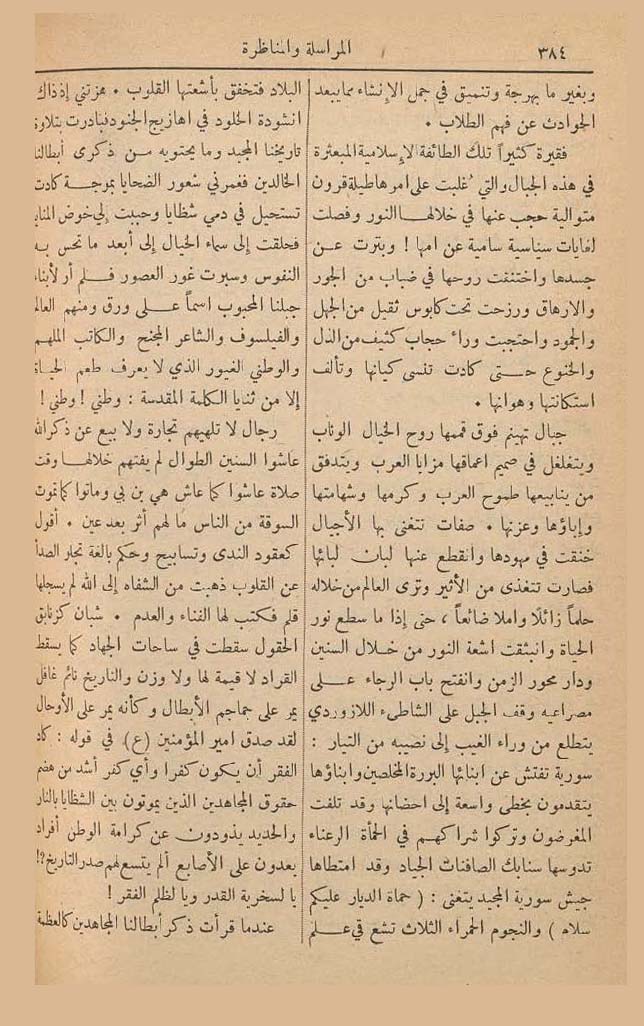 ٣٨٤
المراسلة والمناظرة
وبغير ما بهرجة وتنميق في جمل الإنشاء مما يبعد
الحوادث عن فهم الطلاب .
فقيرة كثيراً تلك الطائفة الإسلامية المبعثرة
في هذه الجبال والتي غلبت على امرها طيلة قرون
متوالية حجب عنها في خلالها النور وفصلت
لغايات سياسية سامية عن امها ! وبترت عن
جسدها واختنقت روحها في ضباب من الجور
والارهاق ورزحت تحت كابوس ثقيل من الجهل
والجمود واحتجبت وراء حجاب كثيف من الذل
والخنوع حتى كادت تنسى كيانها وتألف
استكانتها وهوانها .
جبال تهينم فوق قممها روح الخيال الوثاب
ويتغلغل في صميم اعماقها مزايا العرب ويتدفق
من ينابيعها طموح العرب وكرمها وشهامتها
وإباؤها وعزتها . صفات تتغنى بها الأجيال
خنقت في مهودها وانقطع عنها لبان لبائها
فصارت تتغذى من الأثير وترى العالم من خلاله
حلماً زائلا واملا ضائعاً ، حتى إذا ما سطع نور
الحياة وانبثقت اشعة النور من خلال السنين
ودار محور الزمن وانفتح باب الرجاء على
مصراعيه وقف الجبل على الشاطىء اللازوردي
يتطلع من وراء الغيب إلى نصيبه من التيار :
سورية تفتش عن ابنائها البررة المخلصين وابناؤها
يتقدمون بخطى واسعة إلى احضانها وقد تلفت
المغرضون وتركوا شراكهم في الحمأة الرعناء
تدوسها سنابك الصافنات الجياد وقد امتطاها
جيش سورية المجيد يتغنى : ( حماة الديار عليكم
سلام ) والنجوم الحمراء الثلاث تشع في علم
البلاد فتخفق بأشعتها القلوب . هزتني إذ ذاك
انشودة الخلود في اهازيج الجنود فبادرت بتلاوة
تاريخنا المجيد وما يحتويه من ذكرى أبطالنا
الخالدين فغمرني شعور الضحايا بموجة كادت
تستحيل في دمي شظايا وحببت إلي خوض المنايا
فحلقت إلى سماء الخيال إلى أبعد ما تحس به
النفوس وسبرت غور العصور فلم أر لأبناء
جبلنا المحبوب اسماً على ورق ومنهم العالم
والفيلسوف والشاعر المجنح والكاتب الملهم
والوطني الغيور الذي لا يعرف طعم الحياة
إلا من ثنايا الكلمة المقدسة : وطني ! وطني !
رجال لا تلهيهم تجارة ولا بيع عن ذكر الله
عاشوا السنين الطوال لم يفتهم خلالها وقت
صلاة عاشوا كما عاش هي بن بي وماتوا كما تموت
السوقة من الناس ما لهم أثر بعد عين . أقول
كعقود الندى وتسابيح وحكم بالغة تنجار الصدأ
عن القلوب ذهبت من الشفاه إلى الله لم يسجلها
قلم فكتب لها الفناء والعدم . شبان كزنابق
الحقول سقطت في ساحات الجهاد كما يسقط
القراد لا قيمة لها ولا وزن والتاريخ نائم غافل
يمر على جماجم الأبطال وكأنه يمر على الأوحال
لقد صدق امير المؤمنين (ع) في قوله : كاد
الفقر أن يكون كفرا وأي كفر أشد من هضم
حقوق المجاهدين الذين يموتون بين الشظايا بالنار
والحديد يذودون عن كرامة الوطن أفراد
يعدون على الأصابع ألم يتسع لهم صدر التاريخ ؟!
يا لسخرية القدر ويا لظلم الفقر !
عندما قرأت ذكر أبطالنا المجاهدين كالعظمة